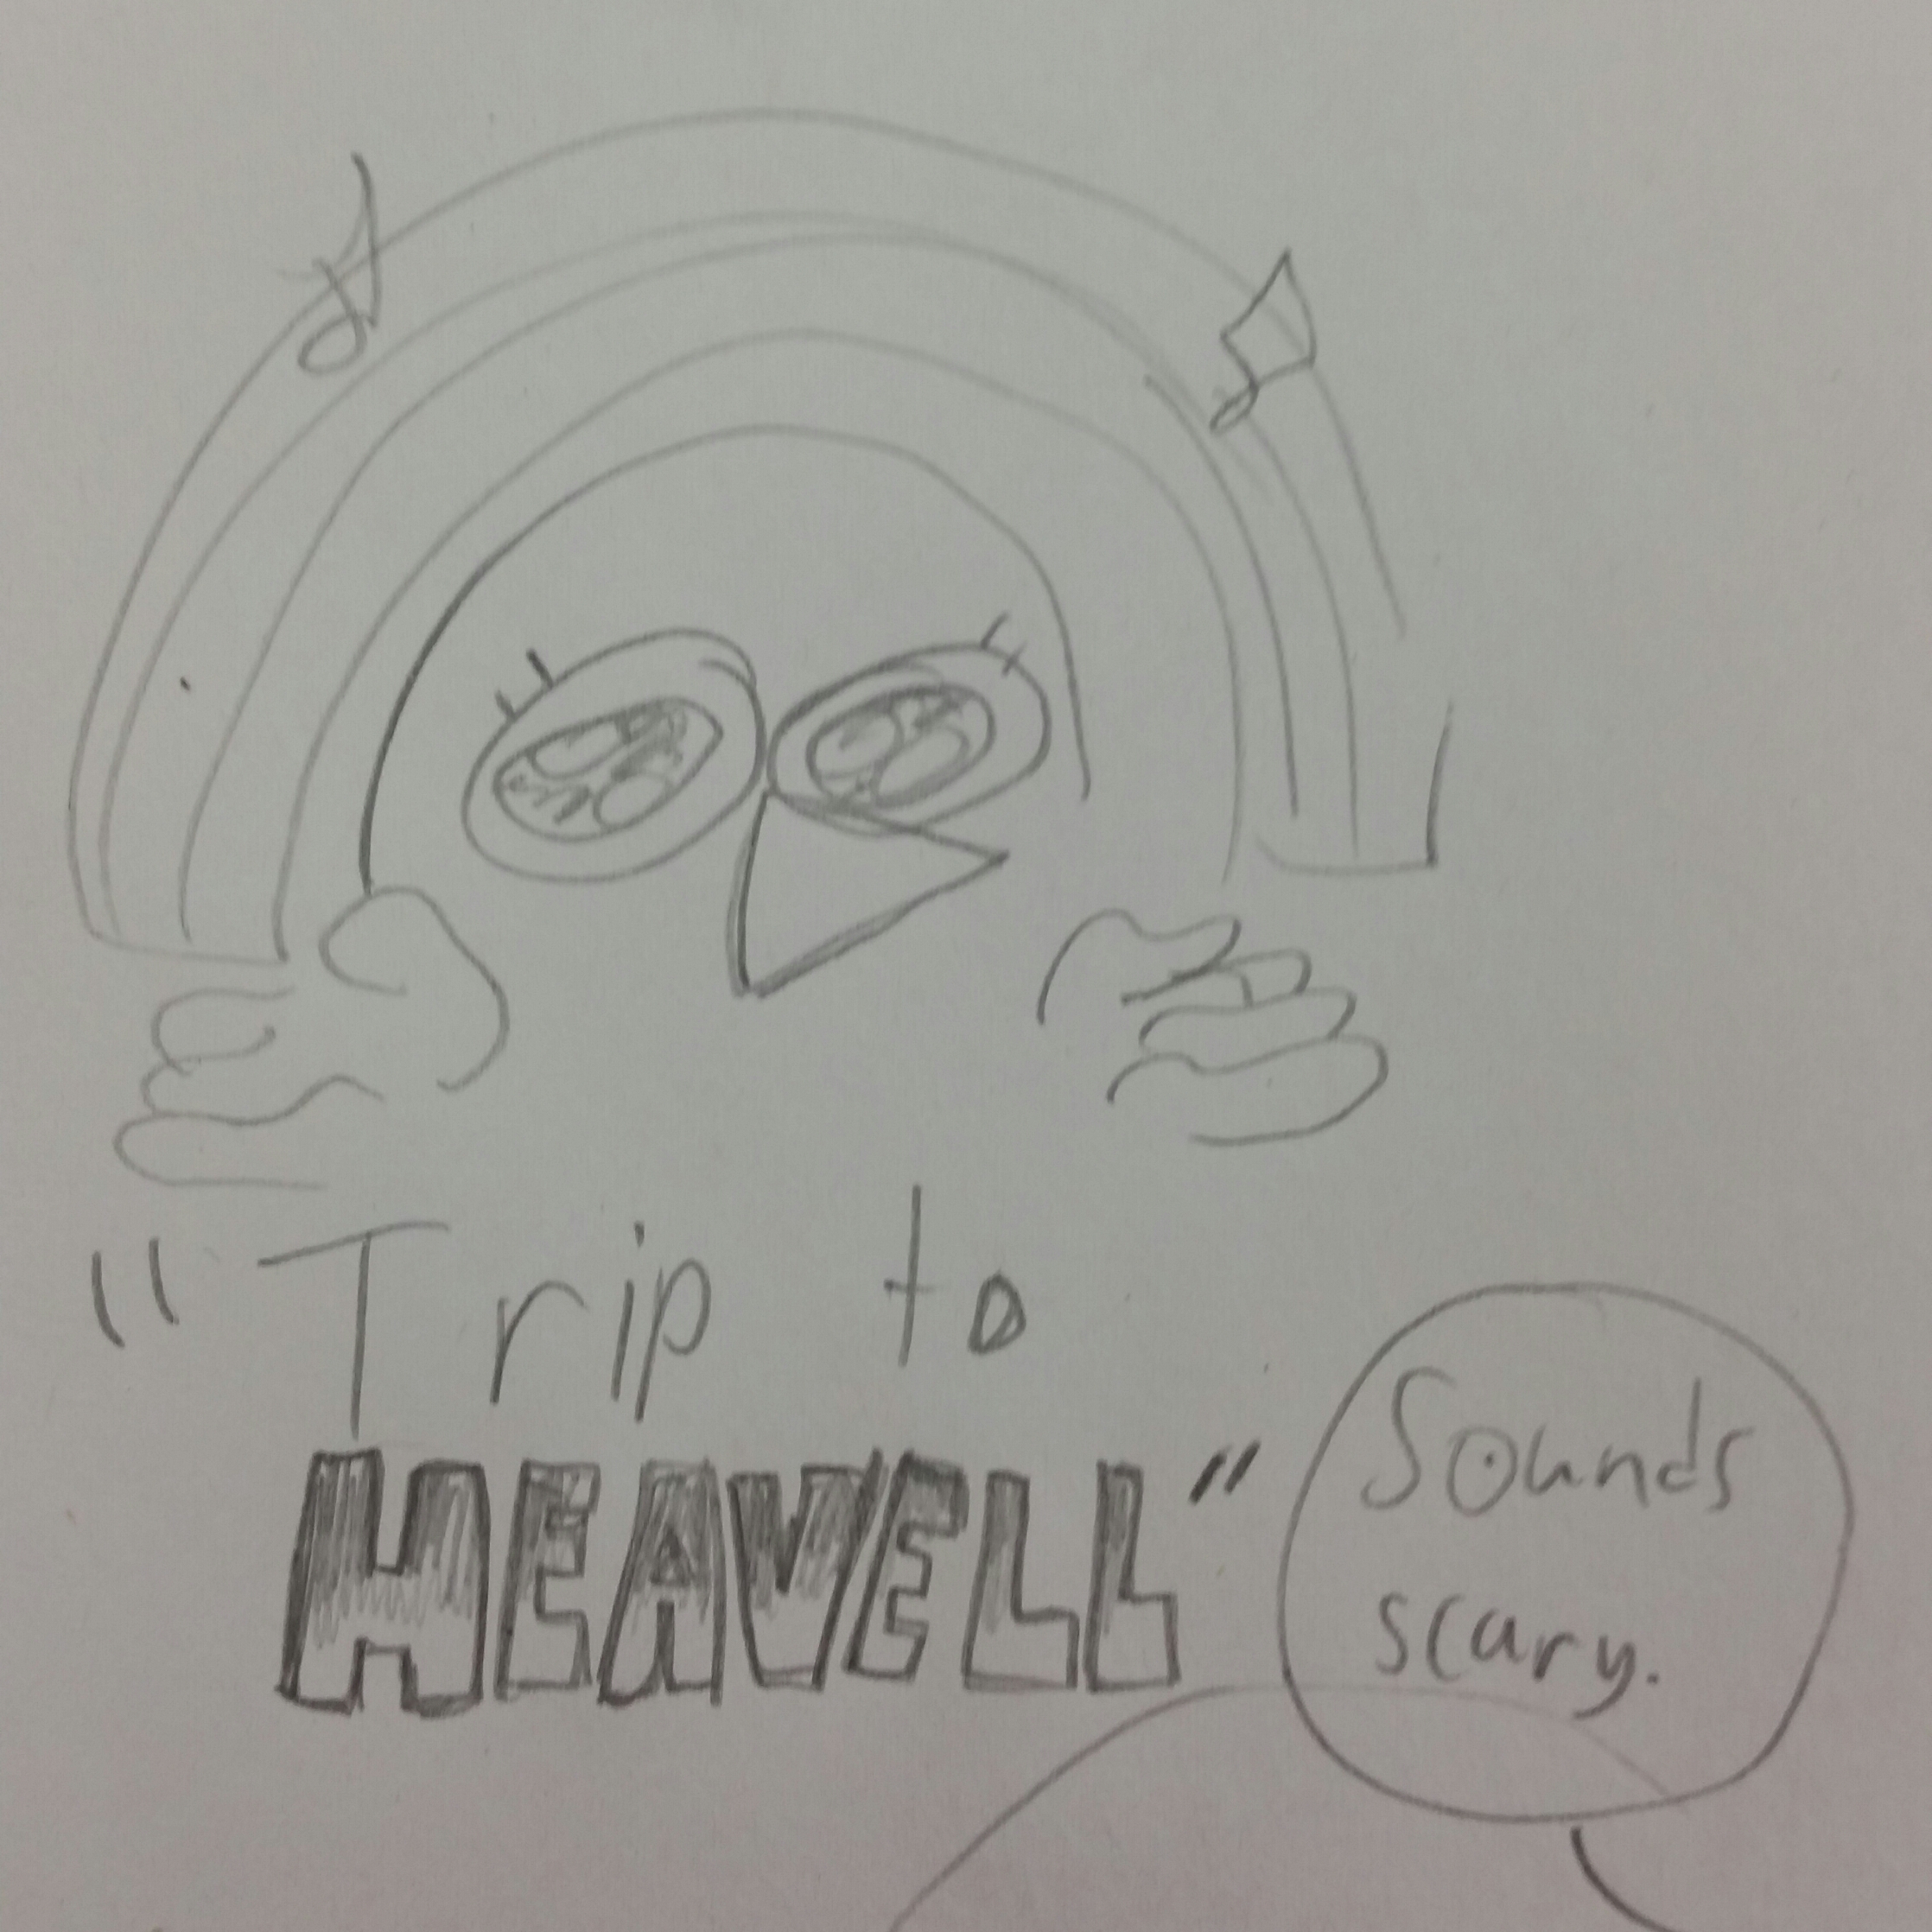 "Trip to
HEAVELL"
Sounds
scary.